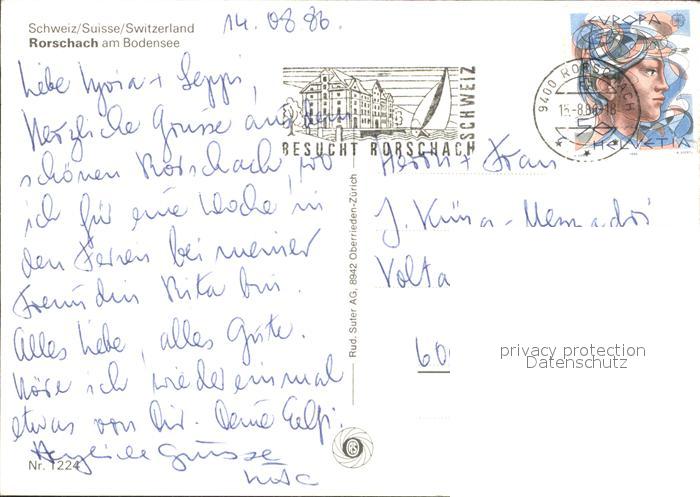 Schweiz/Suisse/Switzerland
Rorschach am Bodensee
14.08 86.
Liebe + Seppi,
Herzliche Grüsse aus dem
schönen Rorschach, wo
ich für eine Woche in
den Ferien bei meiner
Freundin Rita bin.
Alles Liebe, alles Gute.
Höre ich wieder einmal
etwas von Dir. Deine
Herzliche Grüsse
Rita
Nr. 1224
Rud. Suter AG, 8942 Oberrieden-Zürich
BESUCHT RORSCHACH
SCHWEIZ
9400 RORSCHACH
EUROPA
HELVETIA
Herrn + Frau
J.
Volta
60
privacy protection
Datenschutz